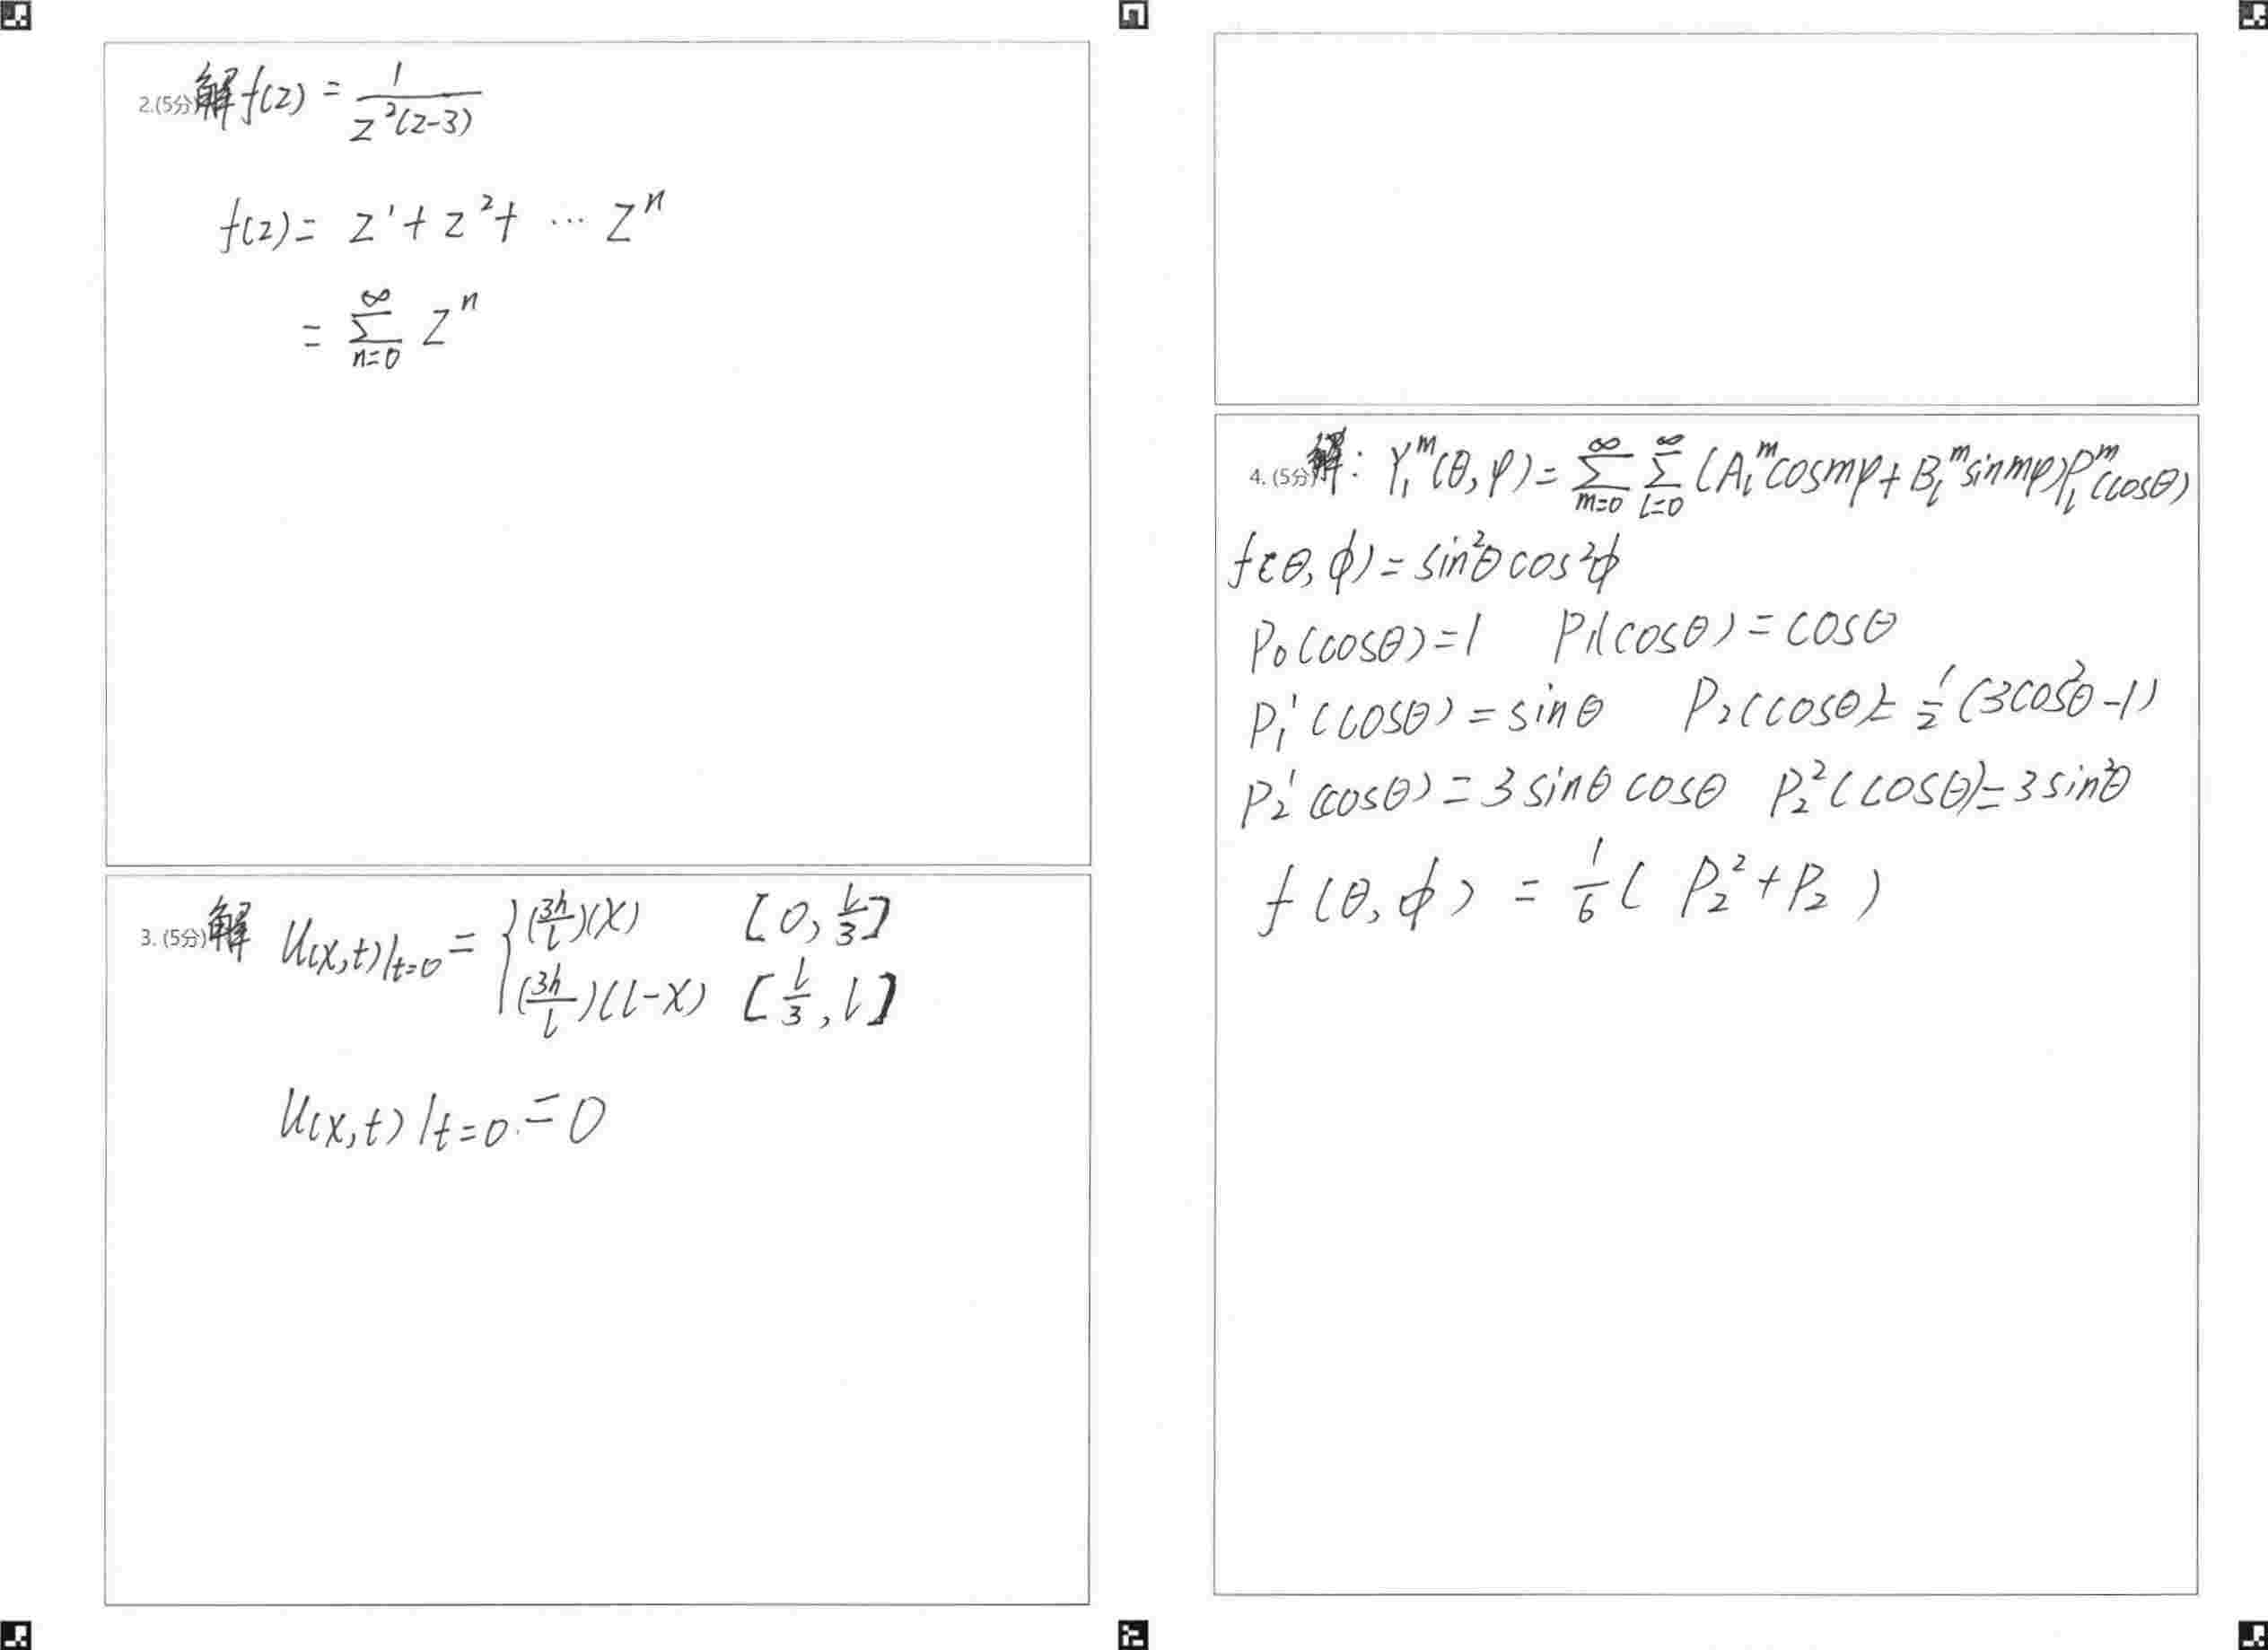 2.(5分)解 f(z) = \frac{1}{z^2(z-3)}
f(z) = z^1 + z^2 + ⋯ z^n
= \sum_{n=0}^{∞} z^n
3. (5分)解 u(x,t)|_{t=0} = { (\frac{3h}{l})(x) [0, \frac{l}{3}]
(\frac{3h}{l})(l-x) [\frac{l}{3}, l]
u(x,t)|_{t=0} = 0
4. (5分)解: Y_1^m(θ,φ) = \sum_{m=0}^{∞} \sum_{l=0}^{∞} (A_l^m cosmφ + B_l^m sinmφ)P_l^m(cosθ)
f(θ,ϕ) = sin^2θ cos^2ϕ
P_0(cosθ)=1 P_1(cosθ) = cosθ
P_1^1(cosθ) = sinθ P_2(cosθ) = \frac{1}{2}(3cos^2θ-1)
P_2^1(cosθ) = 3sinθcosθ P_2^2(cosθ) = 3sin^2θ
f(θ,ϕ) = \frac{1}{6}( P_2^2 + P_2 )